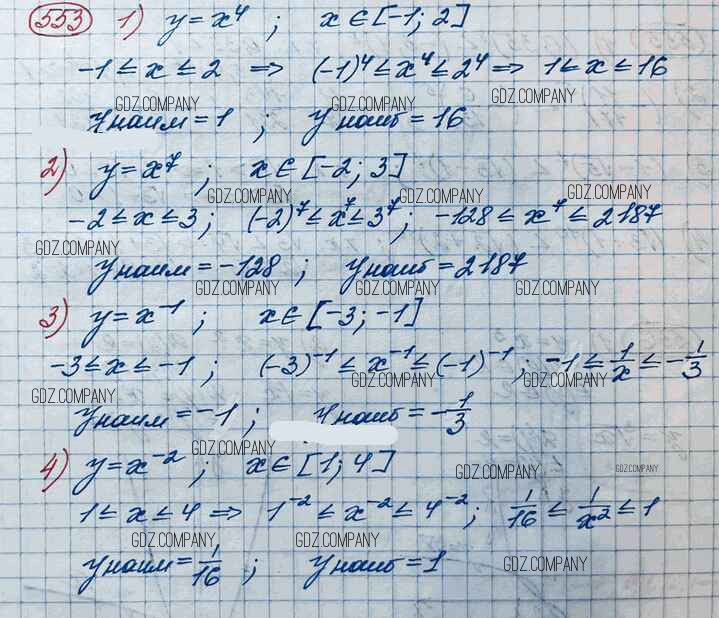 553 1) y = x⁴ ; x ∈ [-1; 2]
-1 ≤ x ≤ 2 ⇒ (-1)⁴ ≤ x⁴ ≤ 2⁴ ⇒ 1 ≤ x ≤ 16
GDZ.COMPANY GDZ.COMPANY GDZ.COMPANY
y наим = 1 ; y наиб = 16
2) y = x⁷ ; x ∈ [-2; 3]
GDZ.COMPANY GDZ.COMPANY GDZ.COMPANY
-2 ≤ x ≤ 3 ; (-2)⁷ ≤ x⁷ ≤ 3⁷ ; -128 ≤ x⁷ ≤ 2187
GDZ.COMPANY
y наим = -128 ; y наиб = 2187
GDZ.COMPANY GDZ.COMPANY GDZ.COMPANY
3) y = x⁻¹ ; x ∈ [-3; -1]
-3 ≤ x ≤ -1 ; (-3)⁻¹ ≤ x⁻¹ ≤ (-1)⁻¹ ; -1 ≤ 1/x ≤ -1/3
GDZ.COMPANY GDZ.COMPANY GDZ.COMPANY
y наим = -1 ; y наиб = -1/3
GDZ.COMPANY
4) y = x⁻² ; x ∈ [1; 4]
GDZ.COMPANY GDZ.COMPANY
1 ≤ x ≤ 4 ⇒ 1⁻² ≤ x⁻² ≤ 4⁻² ; 1/16 ≤ 1/x² ≤ 1
GDZ.COMPANY GDZ.COMPANY
y наим = 1/16 ; y наиб = 1
GDZ.COMPANY